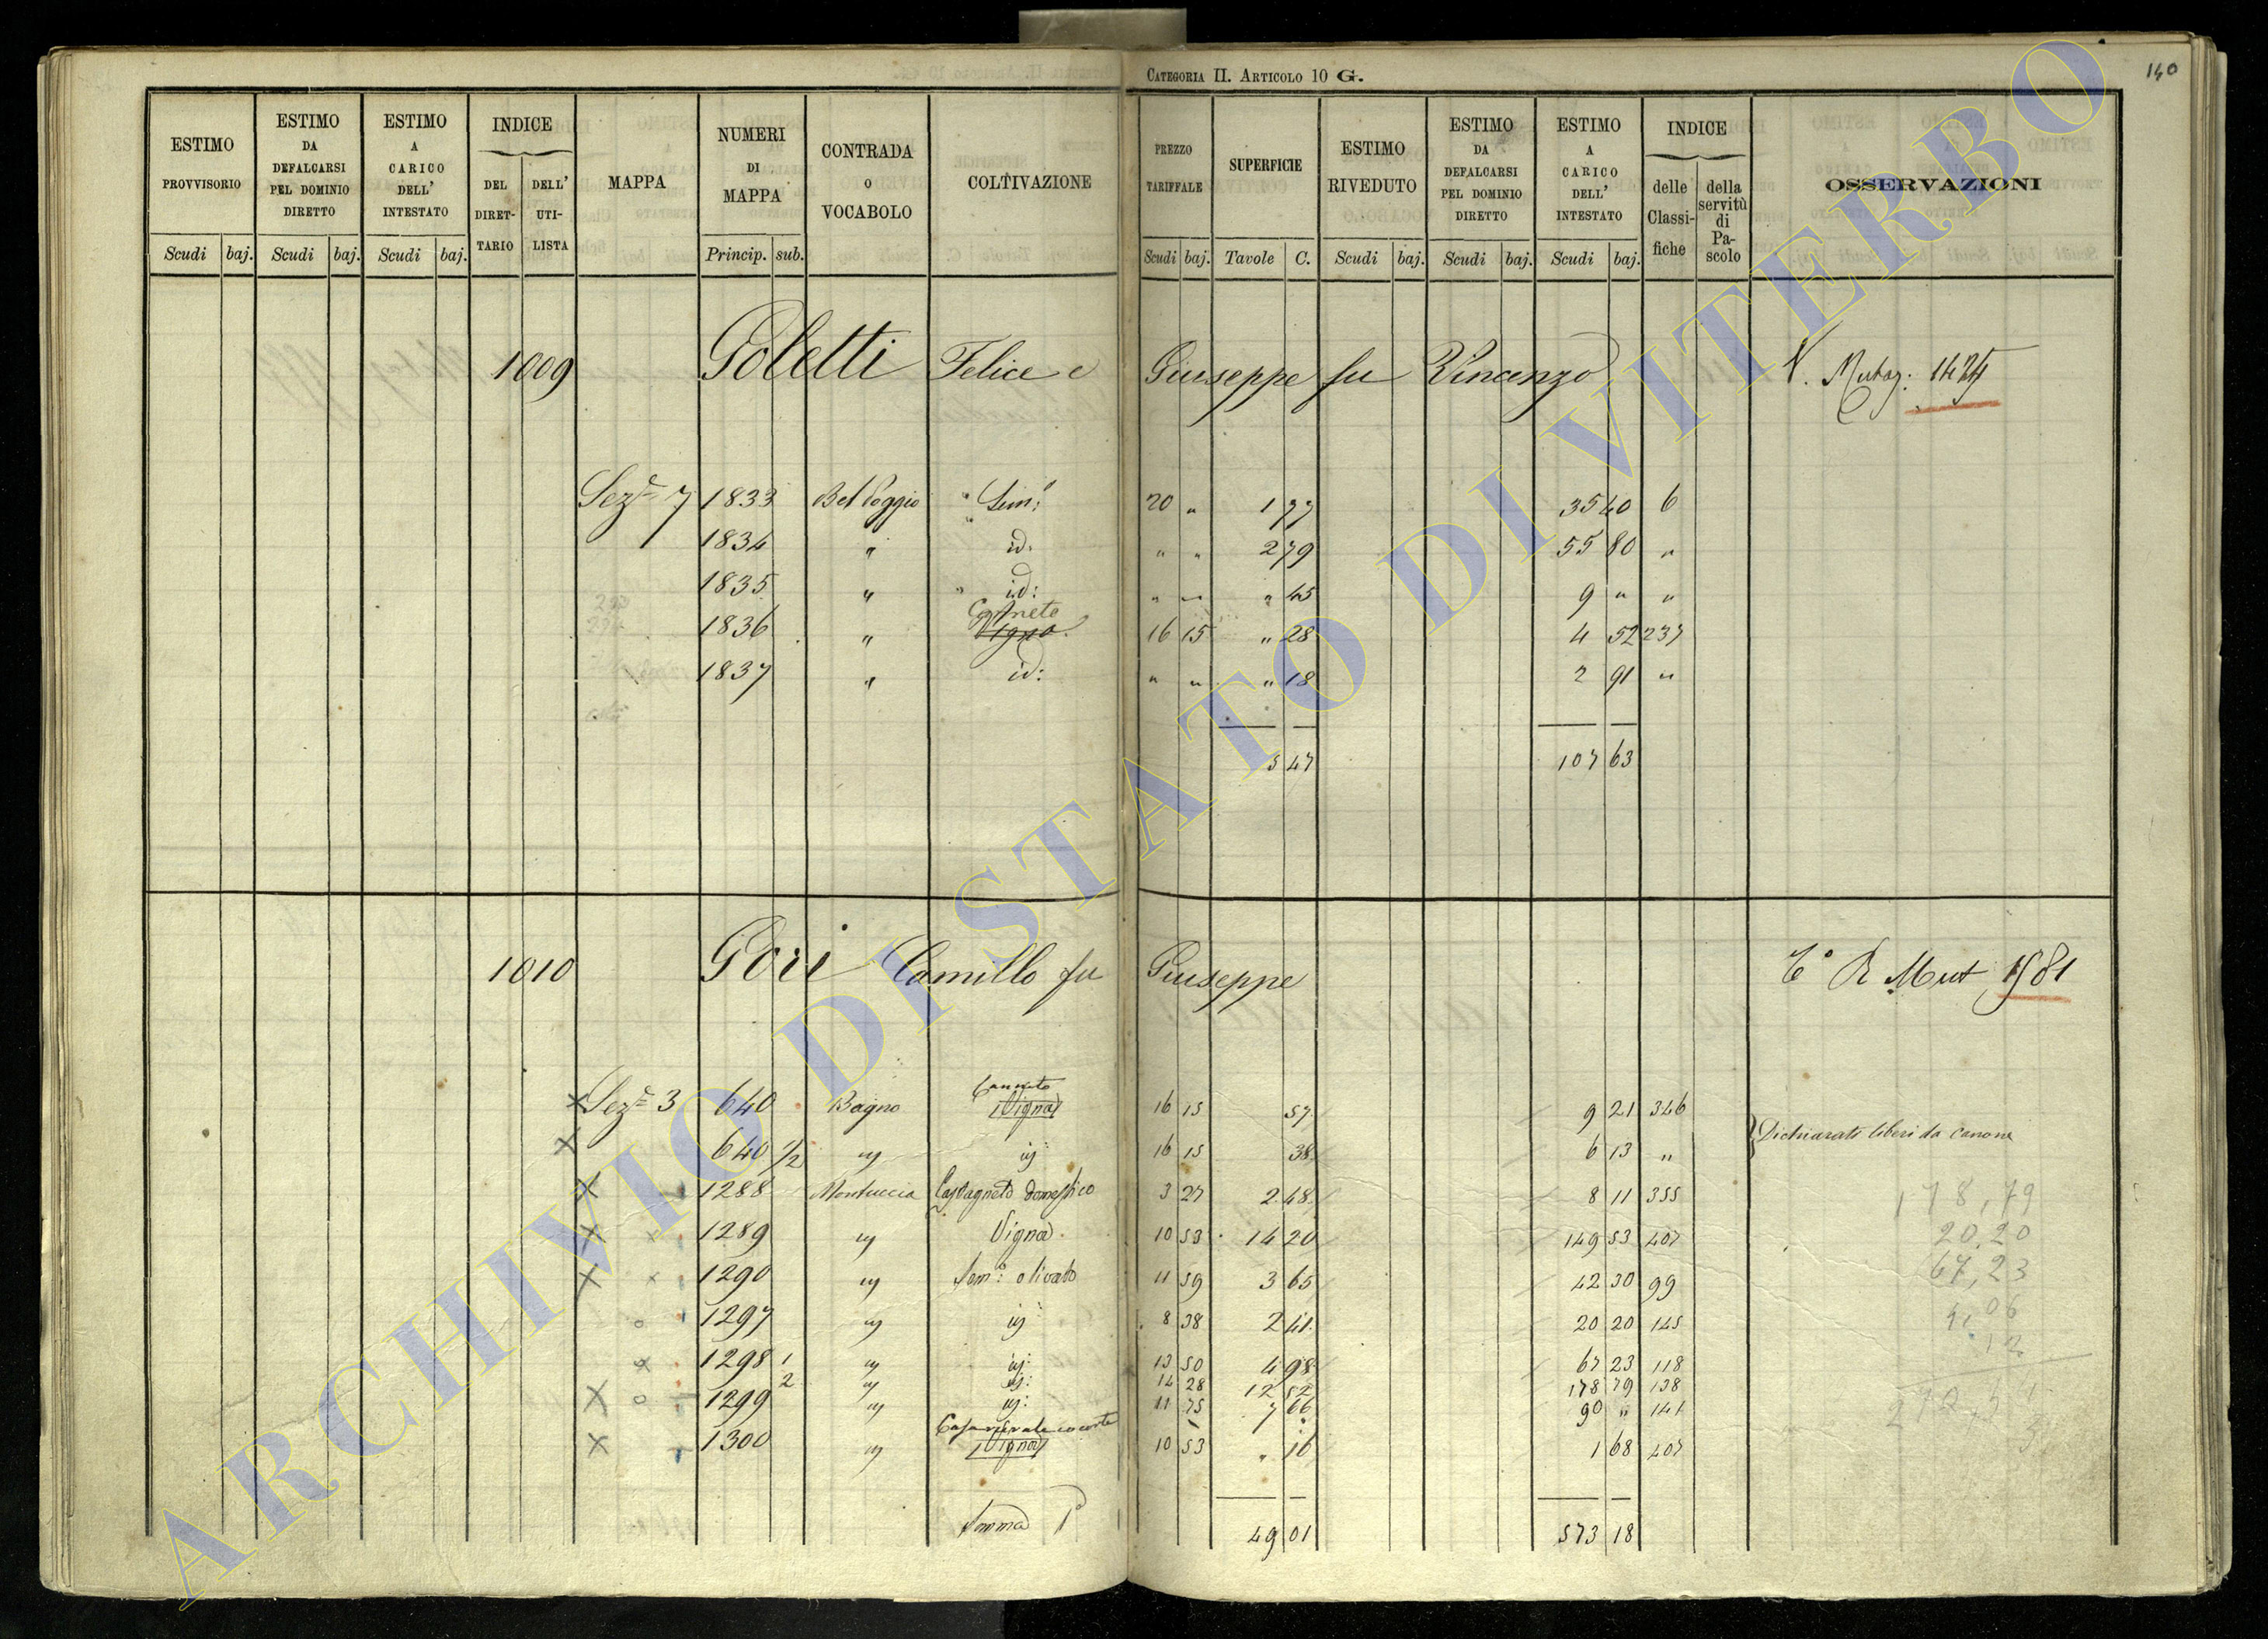 CATEGORIA II. ARTICOLO 10 G.
140
ESTIMO PROVVISORIO | ESTIMO DA DEFALCARSI PEL DOMINIO DIRETTO | ESTIMO A CARICO DELL' INTESTATO | INDICE DEL DIRET-TARIO | DELL' UTI-LISTA | MAPPA | NUMERI DI MAPPA | CONTRADA O VOCABOLO | COLTIVAZIONE | PREZZO TARIFFALE | SUPERFICIE | ESTIMO RIVEDUTO | ESTIMO DA DEFALCARSI PEL DOMINIO DIRETTO | ESTIMO A CARICO DELL' INTESTATO | INDICE delle Classi-fiche | della servitù di Pa-scolo | OSSERVAZIONI
Scudi | baj. | Scudi | baj. | Scudi | baj. | Princip. | sub. | Scudi | baj. | Tavole | C. | Scudi | baj. | Scudi | baj. | Scudi | baj.
1009 Goletti Felice e Giuseppe fu Vincenzo V. Mutaz: 1425
Sez.e 7 1833 Bel Poggio Sem: 20 " 1 77 35 40 6
1834 " id. " " 2 79 55 80 "
1835 " id: " " " 45 9 " "
1836 " Canneto Vigna 16 15 " 28 4 52 237
1837 " id: " " " 18 2 91 "
5 47 107 63
1010 Gori Camillo fu Giuseppe Mut 1581
Canneto
X Sez.e 3 640 Bagno Vigna 16 15 57 9 21 346
X 640 1/2 " 16 15 38 6 13 " Dichiarati liberi da canone
X 1288 Montuccia Castagneto domestico 3 27 2 48 8 11 355
178,79
X x 1289 " Vigna 10 53 14 20 149 53 407
20,20
X x 1290 " Sem: olivato 11 59 3 65 42 30 99
67,23
o 1297 " 8 38 2 41 20 20 145
1298 1 " 13 50 4 98 67 23 118
2 " 14 28 12 52 178 79 138
X o 1299 " 11 75 7 66 90 " 141
X 1300 " Vigna 10 53 " 16 1 68 407
Somma 49 01 573 18
ARCHIVIO DI STATO DI VITERBO